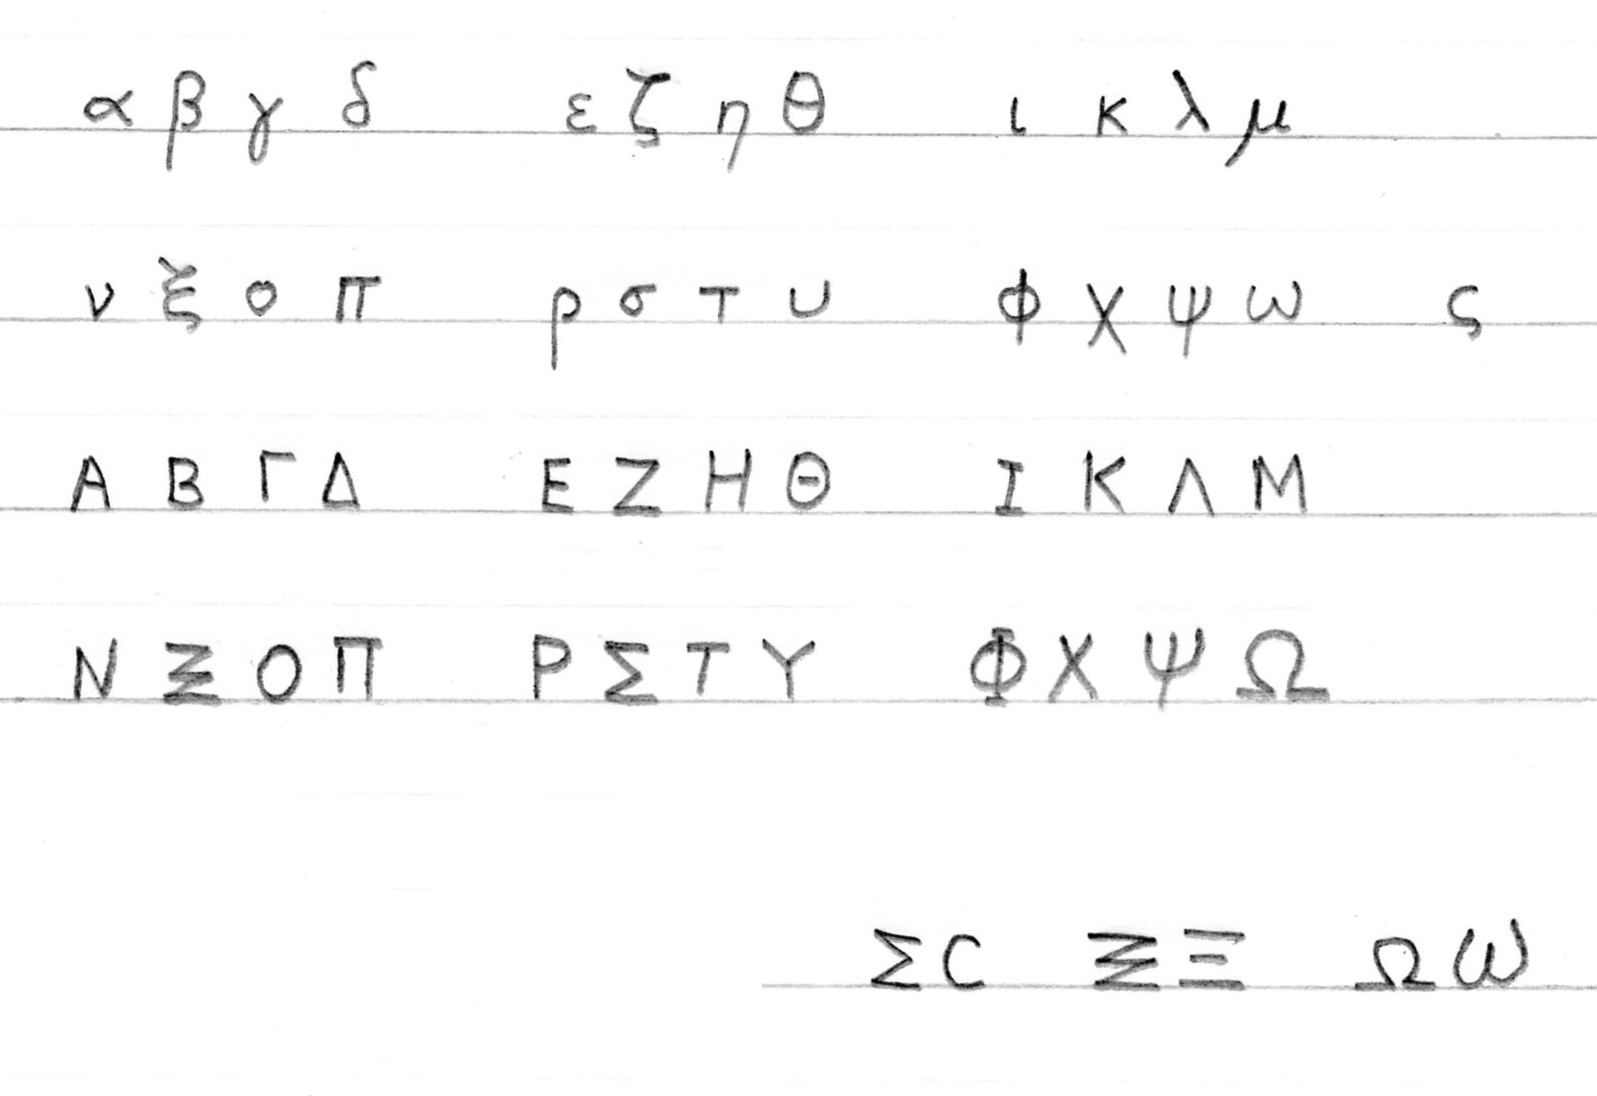 α β γ δ ε ζ η θ ι κ λ μ
ν ξ ο π ρ σ τ υ φ χ ψ ω ς
Α Β Γ Δ Ε Ζ Η Θ Ι Κ Λ Μ
Ν Ξ Ο Π Ρ Σ Τ Υ Φ Χ Ψ Ω
Σ C Ξ Ξ Ω ω